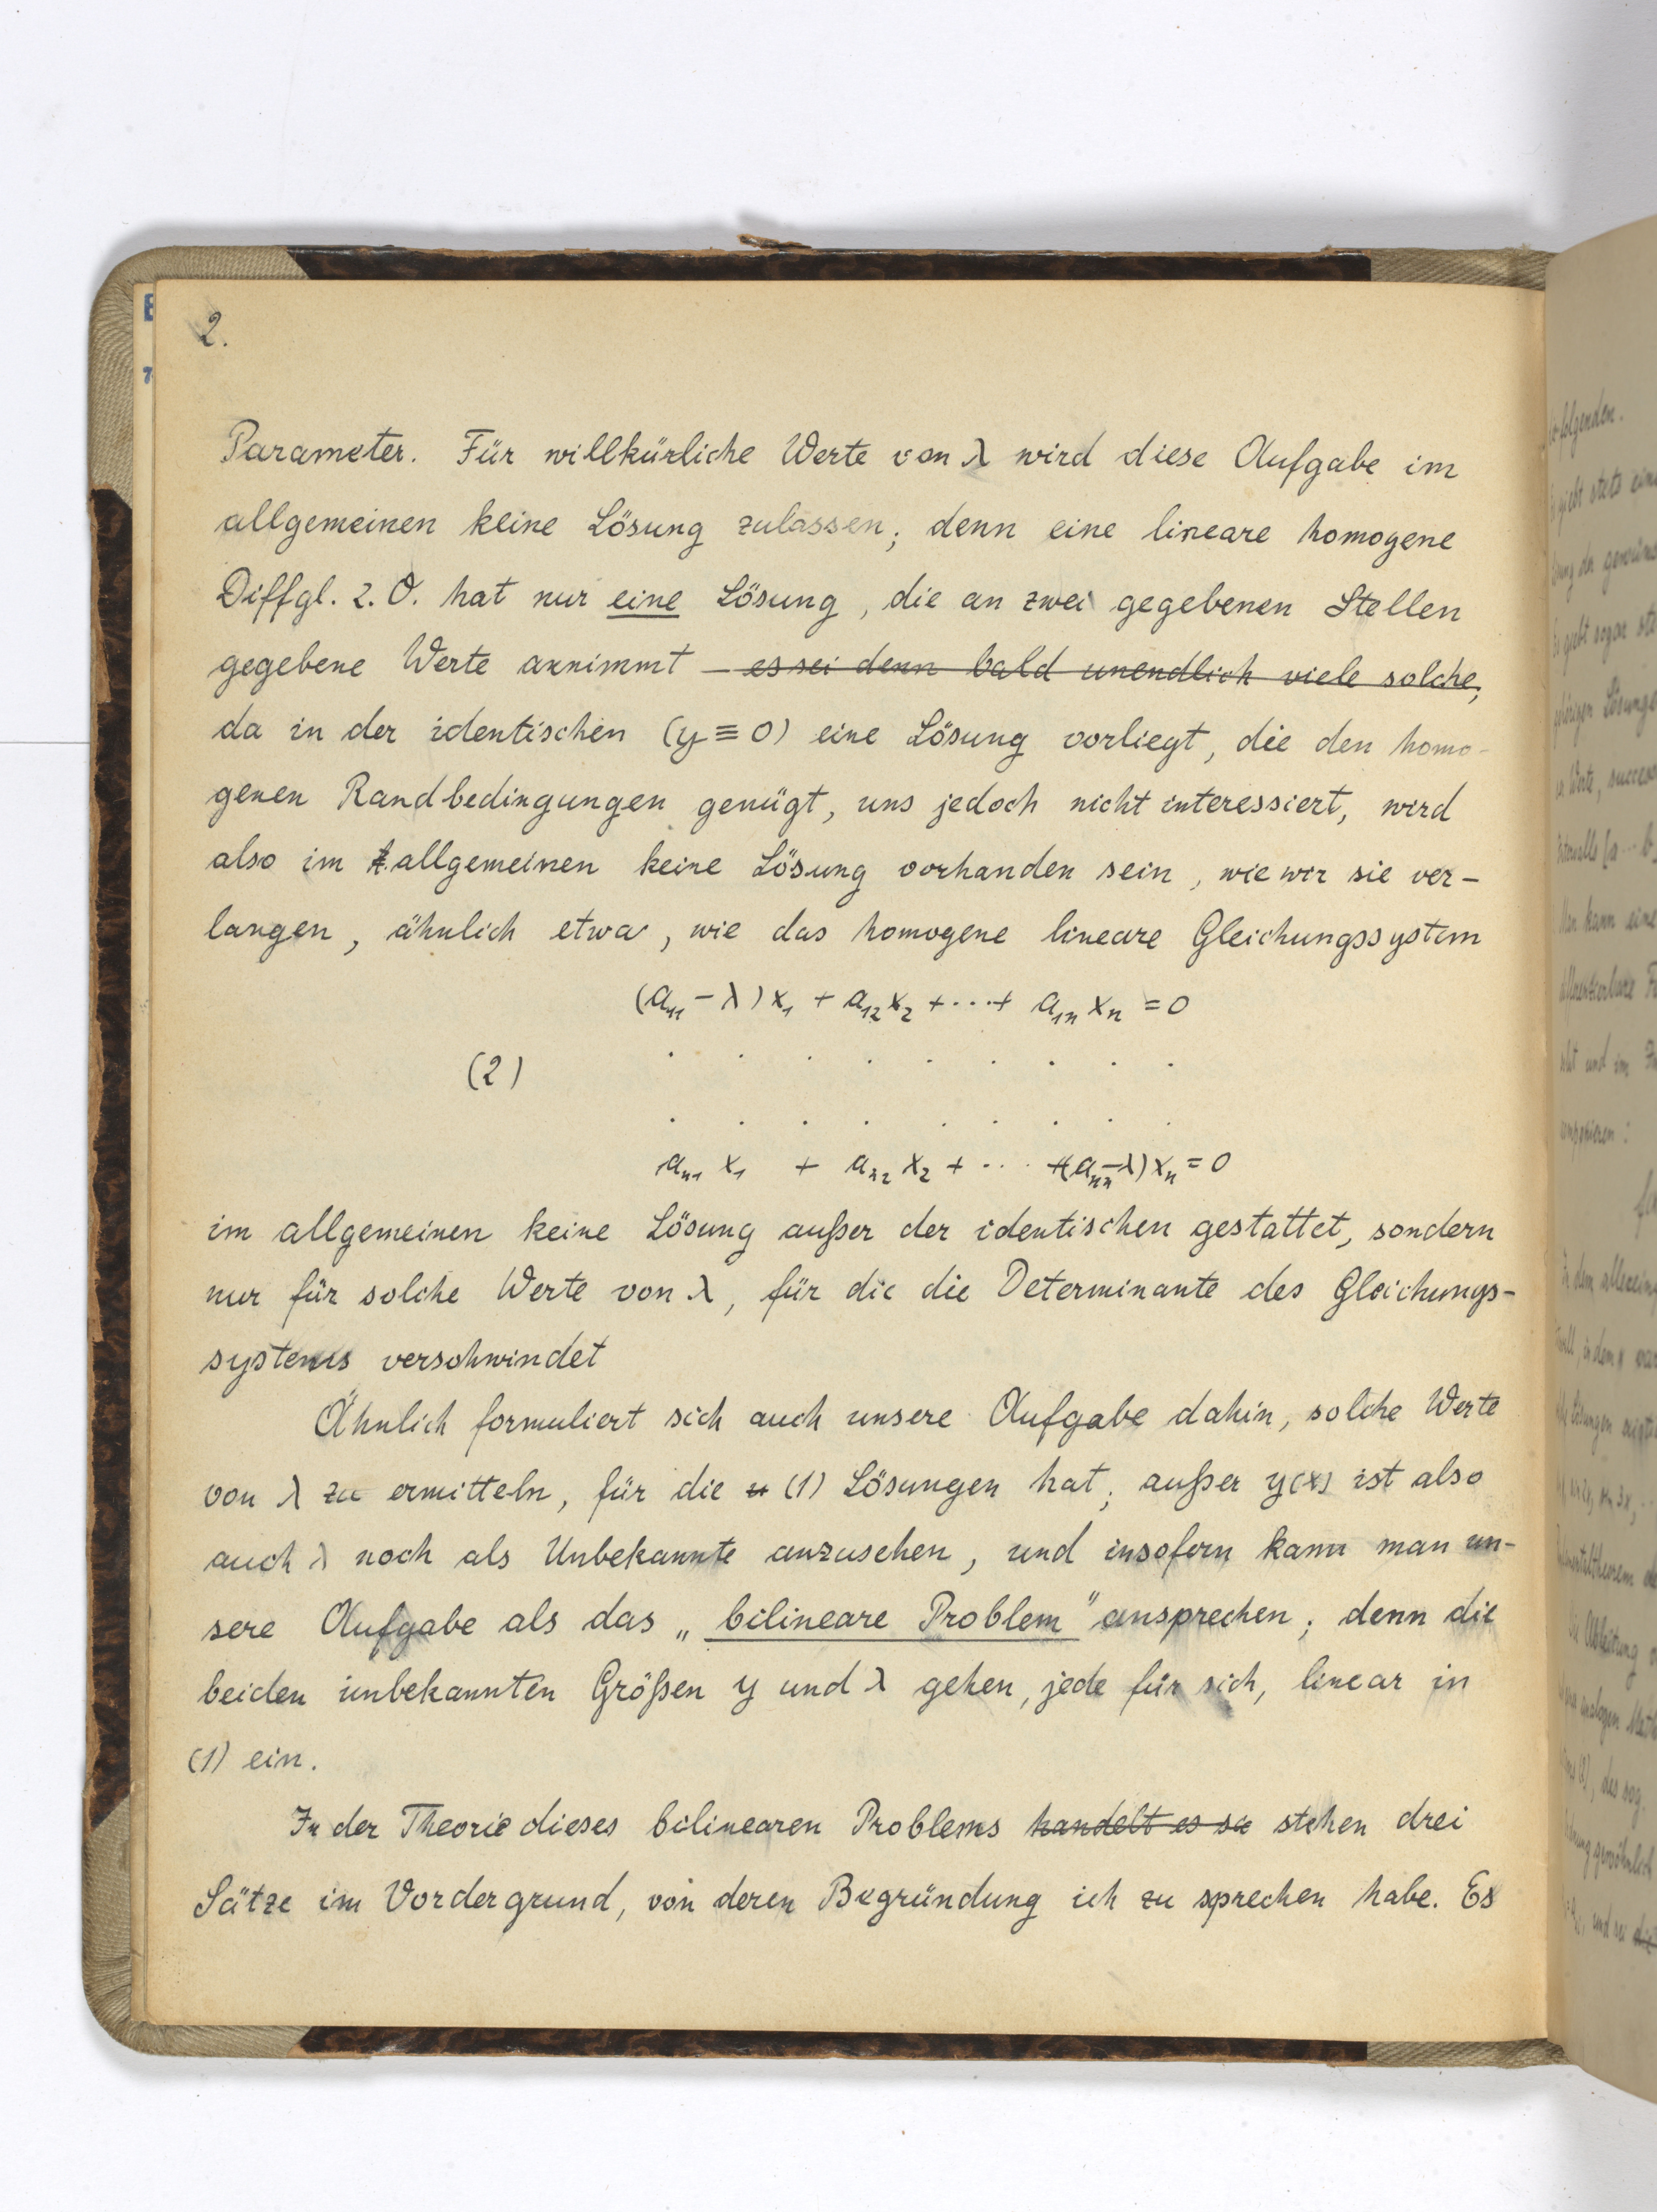 2.
Parameter. Für willkürliche Werte von λ wird diese Aufgabe im
allgemeinen keine Lösung zulassen; denn eine lineare homogene
Diffgl. 2. O. hat nur eine Lösung, die an zwei gegebenen Stellen
gegebene Werte annimmt – es sei denn bald unendlich viele solche;
da in der identischen (y ≡ 0) eine Lösung vorliegt, die den homo-
genen Randbedingungen genügt, uns jedoch nicht interessiert, wird
also im allgemeinen keine Lösung vorhanden sein, wie wir sie ver-
langen, ähnlich etwa, wie das homogene lineare Gleichungssystem
(a₁₁ - λ) x₁ + a₁₂ x₂ + ··· + a₁ₙ xₙ = 0
(2) . . . . . . . . .
. . . . . . . . .
aₙ₁ x₁ + aₙ₂ x₂ + ··· + (aₙₙ - λ) xₙ = 0
im allgemeinen keine Lösung außer der identischen gestattet, sondern
nur für solche Werte von λ, für die die Determinante des Gleichungs-
systems verschwindet
Ähnlich formuliert sich auch unsere Aufgabe dahin, solche Werte
von λ zu ermitteln, für die (1) Lösungen hat; außer y(x) ist also
auch λ noch als Unbekannte anzusehen, und insofern kann man un-
sere Aufgabe als das „bilineare Problem" ansprechen; denn die
beiden unbekannten Größen y und λ gehen, jede für sich, linear in
(1) ein.
In der Theorie dieses bilinearen Problems handelt es su stehen drei
Sätze im Vordergrund, von deren Begründung ich zu sprechen habe. Es